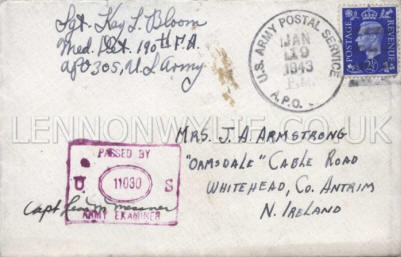 Sgt. Kay L. Bloom
Med. Det. 190th F.A.
APO 305, U.S. Army
U.S. ARMY POSTAL SERVICE
JAN
19
1943
P.M.
A.P.O.
POSTAGE
REVENUE
2½
LENNONWYLIE.CO.UK
MRS. J. A. ARMSTRONG
"ORMSDALE" CABLE ROAD
WHITEHEAD, CO. ANTRIM
N. IRELAND
PASSED BY
U 11030 S
ARMY EXAMINER
Capt